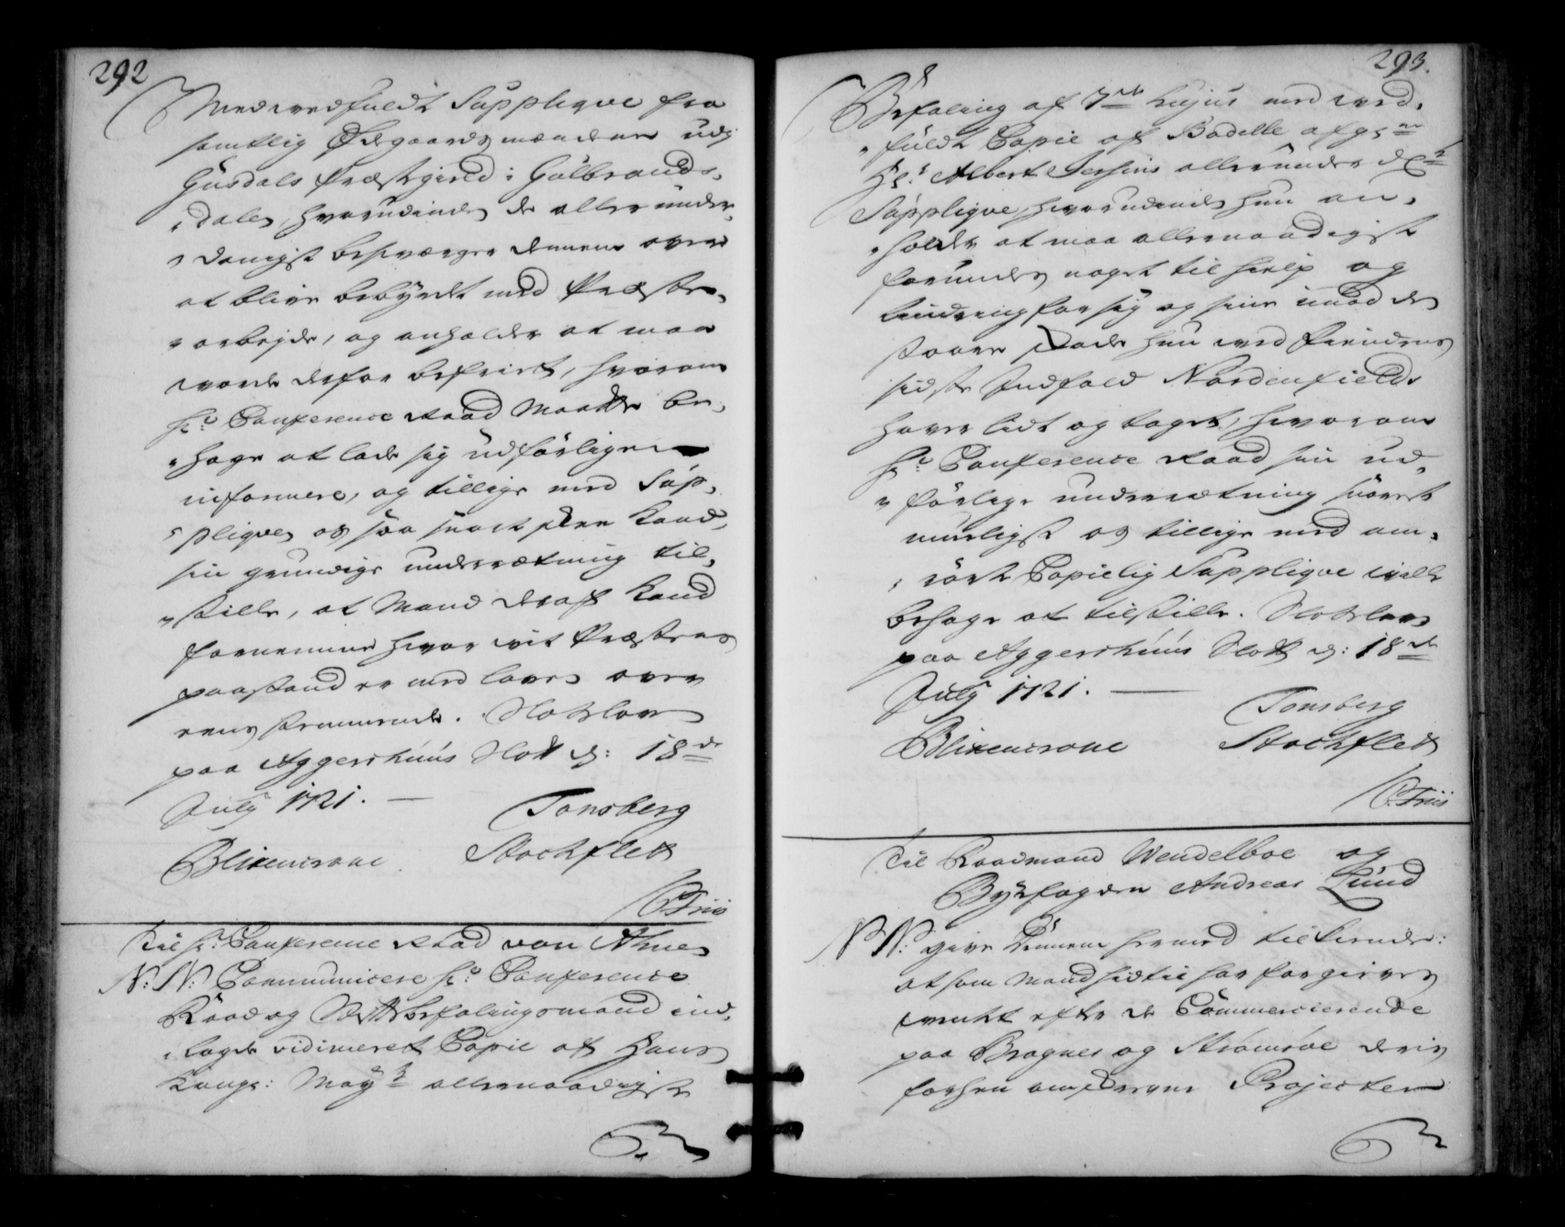 292
Medvedfuldt Supplique fra
samtlig Ødegaardsmændene udj
Gusdals Præstegield i Gulbrands,
„dalen, hvorudinden de allerunder,
„danigst besværger dennem over
at blive bebyrdt med Præste,
„arbejde, og anholder at maa
vorde derfor befriet, hvorom
hr. Conference Raad Maatte be,
„hage at lade sig udførligen
informere, og tillige med Sup,
„pliqven os saa snart skee kand,
sin grundige underrætning til,
„stille, at Mand deraf kand
fornemme hvor vit Præstens
paastand er med loven over
eens stemmende. Slotsloven
paa Aggershuus Slott d: 18de
July 1721.
Tonsberg
Blixencrone
Stockflett
C. Friis
Til hr: Conference Raad von Ahnen
N: N: Communicere hr. Conference
Raad og Stiftbefalingsmand ind,
„lagde vidimeret Copie af Hans
Kongl: Mayts allernaadigste
293.
Befaling af 7de hujus med ved,
„fuldt Copie af Bodelle afgne
Hr. Albert Jersins allerunderd:te
Supplique, hvorudinden hun an,
„holder at maa allernaadigst
forundes noget til hielp og
lindring for sig og sine imod den
store skade hun ved fiendens
sidste Indfald Nordenfields
haver lidt og taget, hvorom
hr. Conference Raad sin ud,
„førlige underrætning snarest
mueligst os tillige med om,
„rørte Copielig Supplique ville
behage at tilstille. Slotsloven
paa Aggershuus Slott d: 18de
July 1721.
Tonsberg
Blixencrone
Stockflett
C. Friis
Til Raadmand Wendelboe og
Byefogden Andreas Lund
N N: give dennem hermed tilkiende:
at som Mand hidtil har forgieves
ventet efter de Commercierende
paa Bragnes og Strømsøe deris
forhen omskrevne Projecter